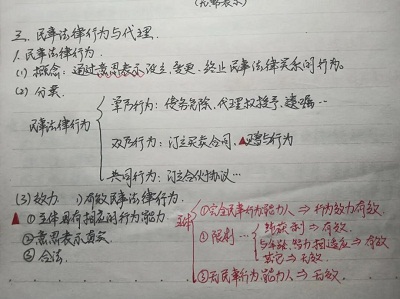 (无需表示)
三、民事法律行为与代理.
1. 民事法律行为.
(1) 概念：通过意思表示设立、变更、终止民事法律关系的行为。
(2) 分类
单方行为：债务免除、代理权授予、遗嘱…
民事法律行为
双方行为：订立买卖合同、▲赠与行为
共同行为：订立合伙协议…
(3) 效力 1) 有效民事法律行为.
▲①主体具有相应的行为能力
②意思表示真实
③合法
主体
①完全民事行为能力人 ⇒ 行为效力有效.
②限制
纯获利 ⇒ 有效.
与年龄、智力相适应 ⇒ 有效
其它 ⇒ 无效.
③无民事行为能力人 ⇒ 无效.